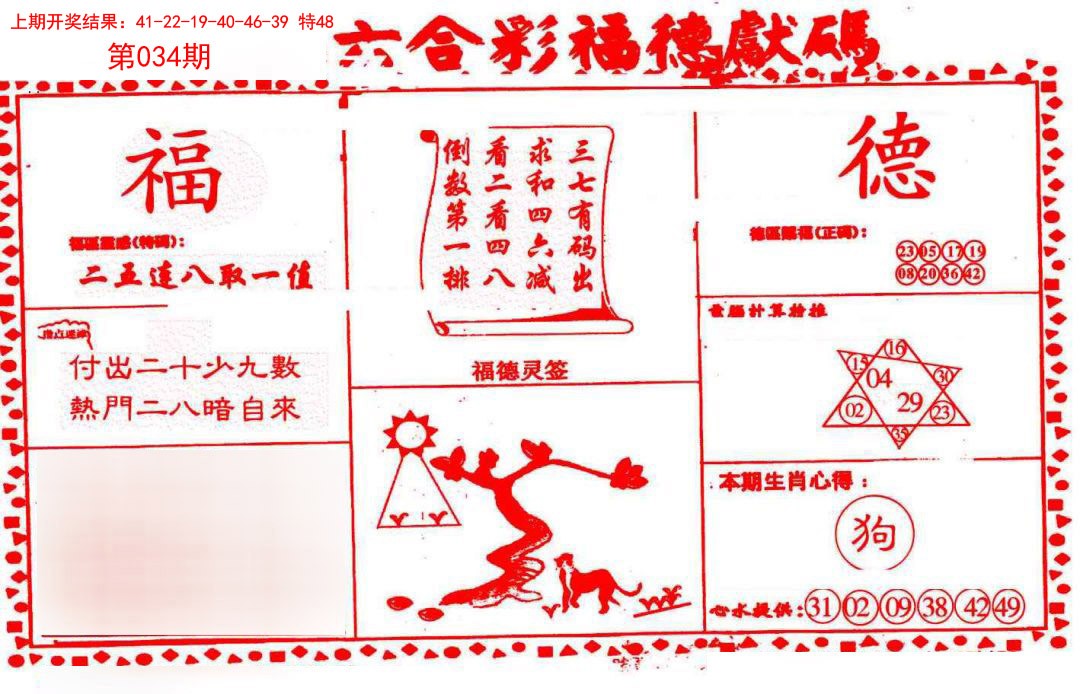 上期开奖结果：41-22-19-40-46-39 特48
第034期
六合彩福德獻碼
福
福區靈感(特碼)：
二五連八取一值
付出二十少九數
熱門二八暗自來
三七有码出
求和四六减
看二看四八
倒数第一排
福德灵签
德
德區賜福(正碼)：
23 05 17 19
08 20 36 42
電腦計算特推
16
15
04
30
02
29
23
35
本期生肖心得：
狗
心水提供：31 02 09 38 42 49